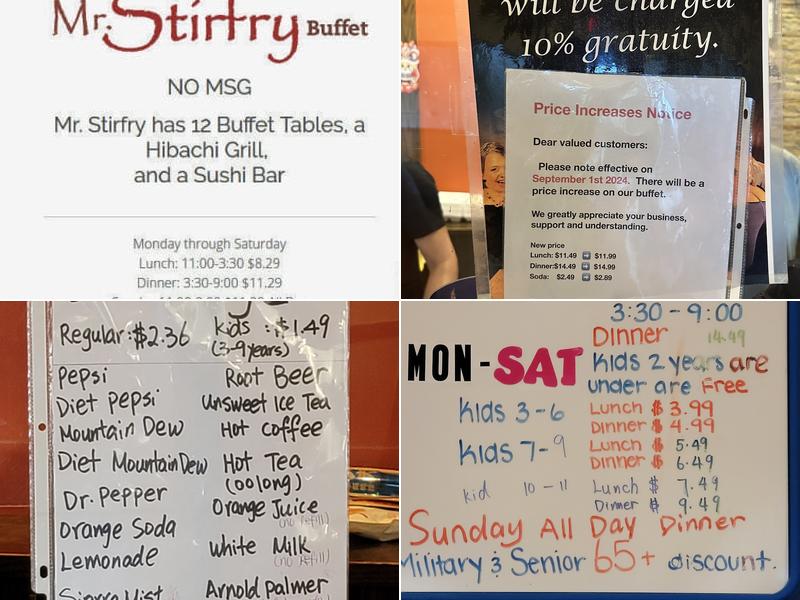 Mr. Stirfry Buffet
NO MSG
Mr. Stirfry has 12 Buffet Tables, a
Hibachi Grill,
and a Sushi Bar
Monday through Saturday
Lunch: 11:00-3:30 $8.29
Dinner: 3:30-9:00 $11.29
will be charged
10% gratuity.
Price Increases Notice
Dear valued customers:
Please note effective on
September 1st 2024. There will be a
price increase on our buffet.
We greatly appreciate your business,
support and understanding.
New price
Lunch: $11.49 ➡ $11.99
Dinner:$14.49 ➡ $14.99
Soda: $2.49 ➡ $2.89
Regular:$2.36 kids :$1.49
(3-9 years)
Pepsi Root Beer
Diet Pepsi Unsweet Ice Tea
Mountain Dew Hot Coffee
Diet Mountain Dew Hot Tea
(oolong)
Dr. Pepper Orange Juice
(no refill)
Orange Soda
Lemonade White Milk
(no refill)
Sierra Mist Arnold palmer
3:30 - 9:00
Dinner 14.49
MON-SAT Kids 2 years are
under are Free
Kids 3-6 Lunch $ 3.99
Dinner $ 4.99
Kids 7-9 Lunch $ 5.49
Dinner $ 6.49
kid 10-11 Lunch $ 7.49
Dinner $ 9.49
Sunday All Day Dinner
Military & Senior 65+ discount.